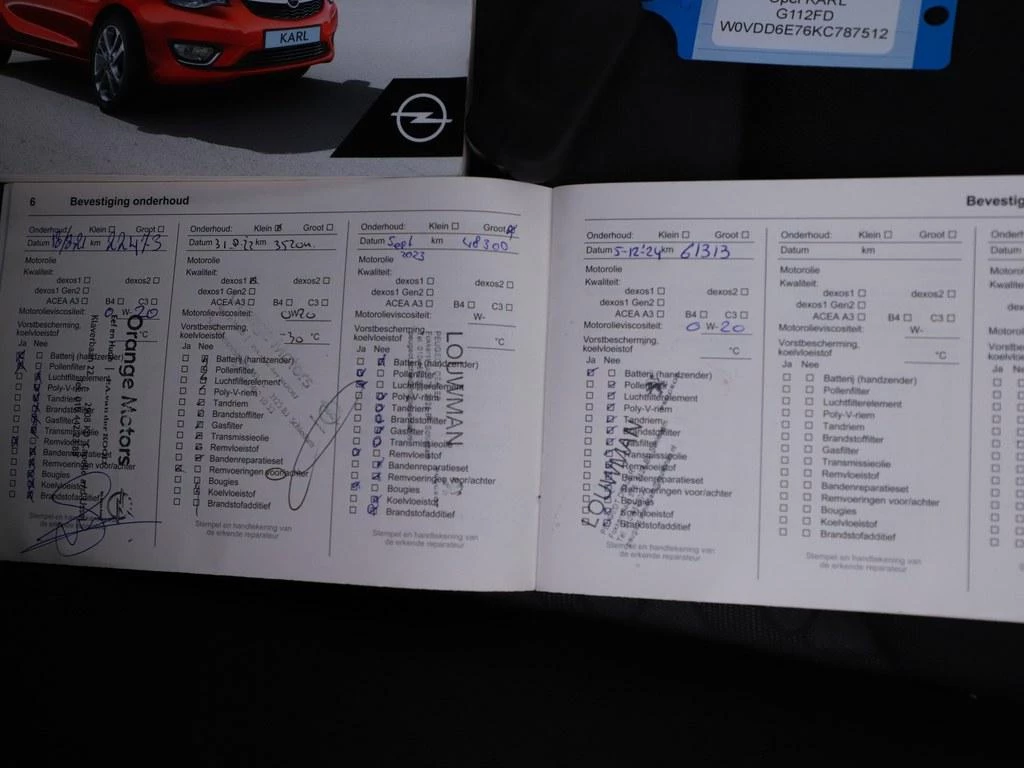 KARL
G112FD
W0VDD6E76KC787512
6 Bevestiging onderhoud
Onderhoud: Klein ☐ Groot ☐
Datum km 22473
Motorolie
Kwaliteit:
dexos1 ☐ dexos2 ☐
dexos1 Gen2 ☐
ACEA A3 ☐ B4 ☐ C3 ☐
Motorolieviscositeit: 0 W-20
Vorstbescherming,
koelvloeistof °C
Ja Nee
Batterij (handzender)
Pollenfilter
Luchtfilterelement
Poly-V-riem
Tandriem
Brandstoffilter
Gasfilter
Transmissieolie
Remvloeistof
Bandenreparatieset
Remvoeringen voor/achter
Bougies
Koelvloeistof
Brandstofadditief
Stempel en handtekening van
de erkende reparateur
Orange Motors
Onderhoud: Klein ☑ Groot ☐
Datum km
Motorolie
Kwaliteit:
dexos1 ☑ dexos2 ☐
dexos1 Gen2 ☐
ACEA A3 ☐ B4 ☐ C3 ☐
Motorolieviscositeit: 0W20
Vorstbescherming,
koelvloeistof -30 °C
Ja Nee
Batterij (handzender)
Pollenfilter
Luchtfilterelement
Poly-V-riem
Tandriem
Brandstoffilter
Gasfilter
Transmissieolie
Remvloeistof
Bandenreparatieset
Remvoeringen voor/achter
Bougies
Koelvloeistof
Brandstofadditief
Stempel en handtekening van
de erkende reparateur
Onderhoud: Klein ☐ Groot ☑
Datum Sept 2023 km 48300
Motorolie
Kwaliteit:
dexos1 ☐ dexos2 ☐
dexos1 Gen2 ☐
ACEA A3 ☐ B4 ☐ C3 ☐
Motorolieviscositeit: W-
Vorstbescherming,
koelvloeistof °C
Ja Nee
Batterij (handzender)
Pollenfilter
Luchtfilterelement
Poly-V-riem
Tandriem
Brandstoffilter
Gasfilter
Transmissieolie
Remvloeistof
Bandenreparatieset
Remvoeringen voor/achter
Bougies
Koelvloeistof
Brandstofadditief
Stempel en handtekening van
de erkende reparateur
LOUWMAN
Bevestig
Onderhoud: Klein ☐ Groot ☐
Datum 5-12-24 km 61313
Motorolie
Kwaliteit:
dexos1 ☐ dexos2 ☐
dexos1 Gen2 ☐
ACEA A3 ☐ B4 ☐ C3 ☐
Motorolieviscositeit: 0 W-20
Vorstbescherming,
koelvloeistof °C
Ja Nee
Batterij (handzender)
Pollenfilter
Luchtfilterelement
Poly-V-riem
Tandriem
Brandstoffilter
Gasfilter
Transmissieolie
Remvloeistof
Bandenreparatieset
Remvoeringen voor/achter
Bougies
Koelvloeistof
Brandstofadditief
Stempel en handtekening van
de erkende reparateur
LOUWMAN
Onderhoud: Klein ☐ Groot ☐
Datum km
Motorolie
Kwaliteit:
dexos1 ☐ dexos2 ☐
dexos1 Gen2 ☐
ACEA A3 ☐ B4 ☐ C3 ☐
Motorolieviscositeit: W-
Vorstbescherming,
koelvloeistof °C
Ja Nee
Batterij (handzender)
Pollenfilter
Luchtfilterelement
Poly-V-riem
Tandriem
Brandstoffilter
Gasfilter
Transmissieolie
Remvloeistof
Bandenreparatieset
Remvoeringen voor/achter
Bougies
Koelvloeistof
Brandstofadditief
Stempel en handtekening van
de erkende reparateur